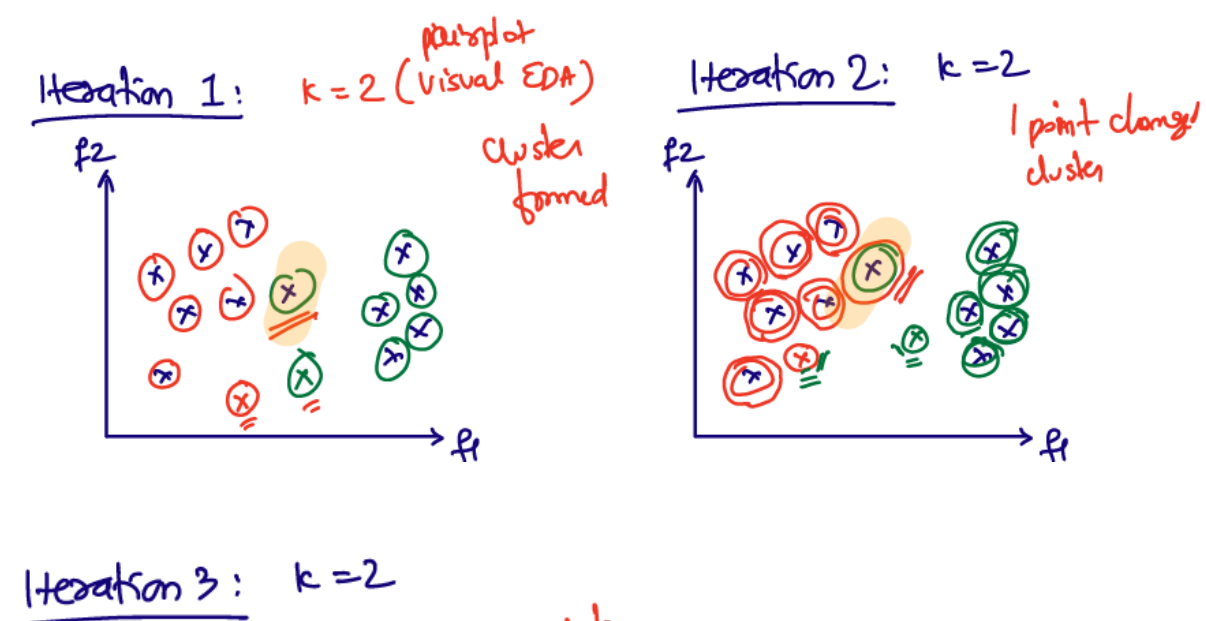 Iteration 1:
k = 2 (visual EDA)
pairplot
cluster
formed
f2
f1
Iteration 2: k = 2
1 point changed
cluster
f2
f1
Iteration 3: k = 2